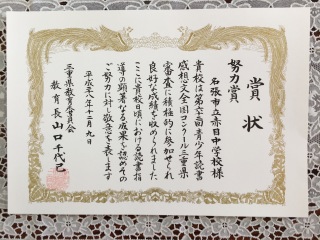 賞状
努力賞
名張市立赤目中学校様
貴校は第六二回青少年読書
感想文全国コンクール三重県
審査に積極的に参加せられ
良好な成績を収められました
ここに貴校日頃における読書指
導の顕著なる成果を認めその
ご努力に対し敬意を表します
平成二八年十二月九日
三重県教育委員会
教育長山口千代己